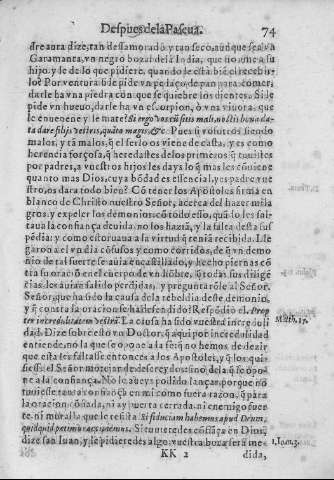 Despues de la Pascua. 74
dre aura dize, tan desamorado y tan seco, aun que sea vn
Garamanta, vn negro bozal de la India, que no ame a su
hijo, y se de lo que pidiere, quando le está bié el recebir-
los? Por ventura si le pide vn pedaço de pan para comer,
darle ha vna piedra con que se quiebre los dientes? Si le
pide vn hueuo, darle ha vn escorpion, ò vna viuora, que
le enuenene y le mate? Si ergo vos cũ sitis mali, nostis bona da-
ta dare filijs vestris, quāto magis, &c. Pues si vosotros siendo
malos, y tā malos, q̃ el serlo os viene de casta, y es como
herencia forçosa, q̃ heredastes de los primeros q̃ tuuistes
por padres, a vuestros hijos les days lo q̃ mas les cõuiene
quanto mas Dios, cuya bõdad es essencial, y es padre vue
stro, os dara todo bien? Cõ tener los Apostoles firma en
blanco de Christo nuestro Señor, acerca del hazer mila
gros, y expeler los demonios: cõ todo esso, quã do les fal-
taua la confiança deuida, no los haziã, y la falta desta sus
pēdia: y como estoruaua a la virtud q̃ teniã recebida. Lle
garon a el vn dia cõfusos y como corridos, de q̃ vn demo
nio de tal suerte se auia encastillado, y hecho piernas cõ
tra su oraciõ en el cuerpo de vn hõbre, q̃ todas sus diligē
cias les auian salido perdidas, y preguntarõle al Señor.
Señor, que ha sido la causa de la rebeldia deste demonio,
y q̃ contra la oracion se aya defendido? Respõdio el. Prop
ter incredulitatem vestrã. La causa ha sido vuestra incredu li
dad. Dize sobre esto vn Doctor, q̃ aqui por incredulidad
entiende, no la que se opone a la fe: q̃ no hemos de dezir
que esta les faltasse entonces a los Apostoles, y q̃ los qui-
siesse el Señor motejar de descreydos: sino de la q̃ se opo-
ne a la confiança. No le aueys podido lançar, porque no
tuuisteis tanta confiança en mi como fuera razon, q̃ para
la oracion cõfiada, ni ay puerta cerrada, ni enemigo fuer
te, ni muralla que le resista. Si fiduciam habemus apud Deum,
quidquid petimus accipiemus. Si tuuieredes confiãça en Dios,
dize san Iuan, y le pidieredes algo: vuestra boca sera me-
Math. 17.
I. Ioan. 3.
KK 2 dida,